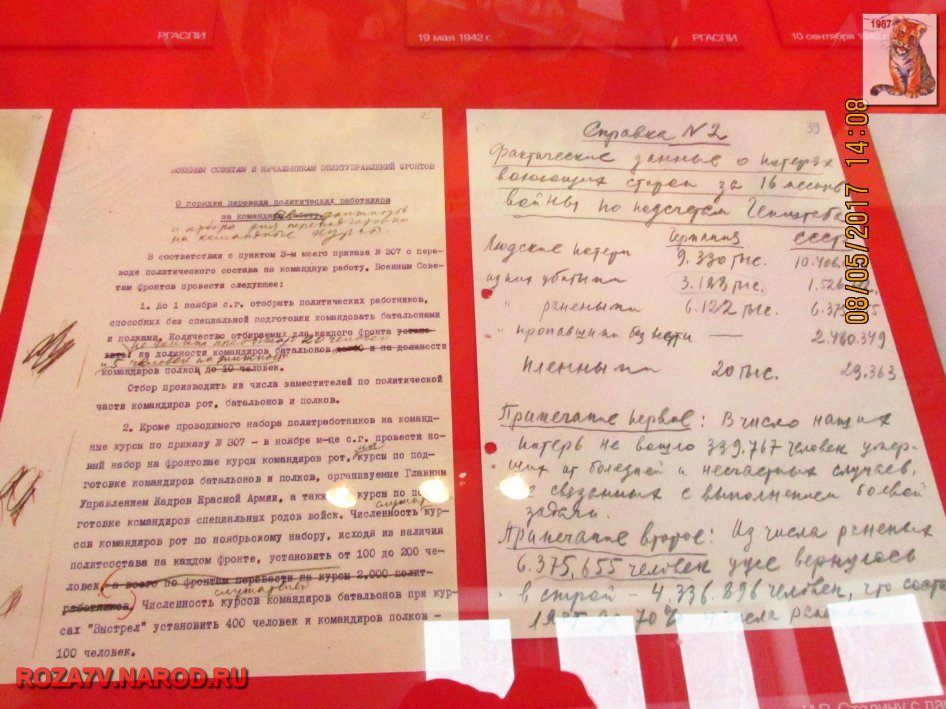 РГАСПИ
19 мая 1942 г.
РГАСПИ
10 сентября 1942 г.
1987
08/05/2017 14:08
75
ВОЕННЫМ СОВЕТАМ И НАЧАЛЬНИКАМ ПОЛИТУПРАВЛЕНИЙ ФРОНТОВ
О порядке перевода политических работников
на командные должности
и отбора для переподготовки
на командные курсы
В соответствии с пунктом 3-м моего приказа № 307 о пере-
воде политического состава на командную работу, Военным Сове-
там фронтов провести следующее:
1. До 1 ноября с.г. отобрать политических работников,
способных без специальной подготовки командовать батальонами
и полками. Количество отбираемых для каждого фронта устано-
20 человек
вить: на должности командиров батальонов до 40 и на должности
и 5 человек на должности
командиров полков до 10 человек.
Отбор производить из числа заместителей по политической
части командиров рот, батальонов и полков.
2. Кроме проводимого набора политработников на команд-
ные курсы по приказу № 307 - в ноябре м-це с.г. провести но-
вый набор на фронтовые курсы командиров рот, курсы по под-
готовке командиров батальонов и полков, организуемые Главным
Управлением Кадров Красной Армии, а также курсы по под-
готовке командиров специальных родов войск. Численность кур-
сов командиров рот по ноябрьскому набору, исходя из наличия
политсостава на каждом фронте, установить от 100 до 200 че-
ловек, а всего по фронтам перевести на курсы 2,000 полит-
работников. Численность курсов командиров батальонов при кур-
сах "Выстрел" установить 400 человек и командиров полков -
100 человек.
39
Справка N 2
Фактические данные о потерях
воюющих сторон за 16 месяцев
войны по подсчетам Генштаба
Германия СССР
Людские потери 9.330 тыс.
из них убитыми 3.188 тыс.
" ранеными 6.122 тыс.
" пропавшими без вести — 2.480.349
пленными 20 тыс. 29.363
Примечание первое: В число наших
потерь не вошло 339.767 человек умер-
ших от болезней и несчастных случаев,
не связанных с выполнением боевой
задачи.
Примечание второе: Из числа раненых
6.375,655 человек уже вернулось
в строй - 4.336.896 человек, что сост
до 70% из числа раненых.
ROZATV.NAROD.RU
И.В. Сталину с